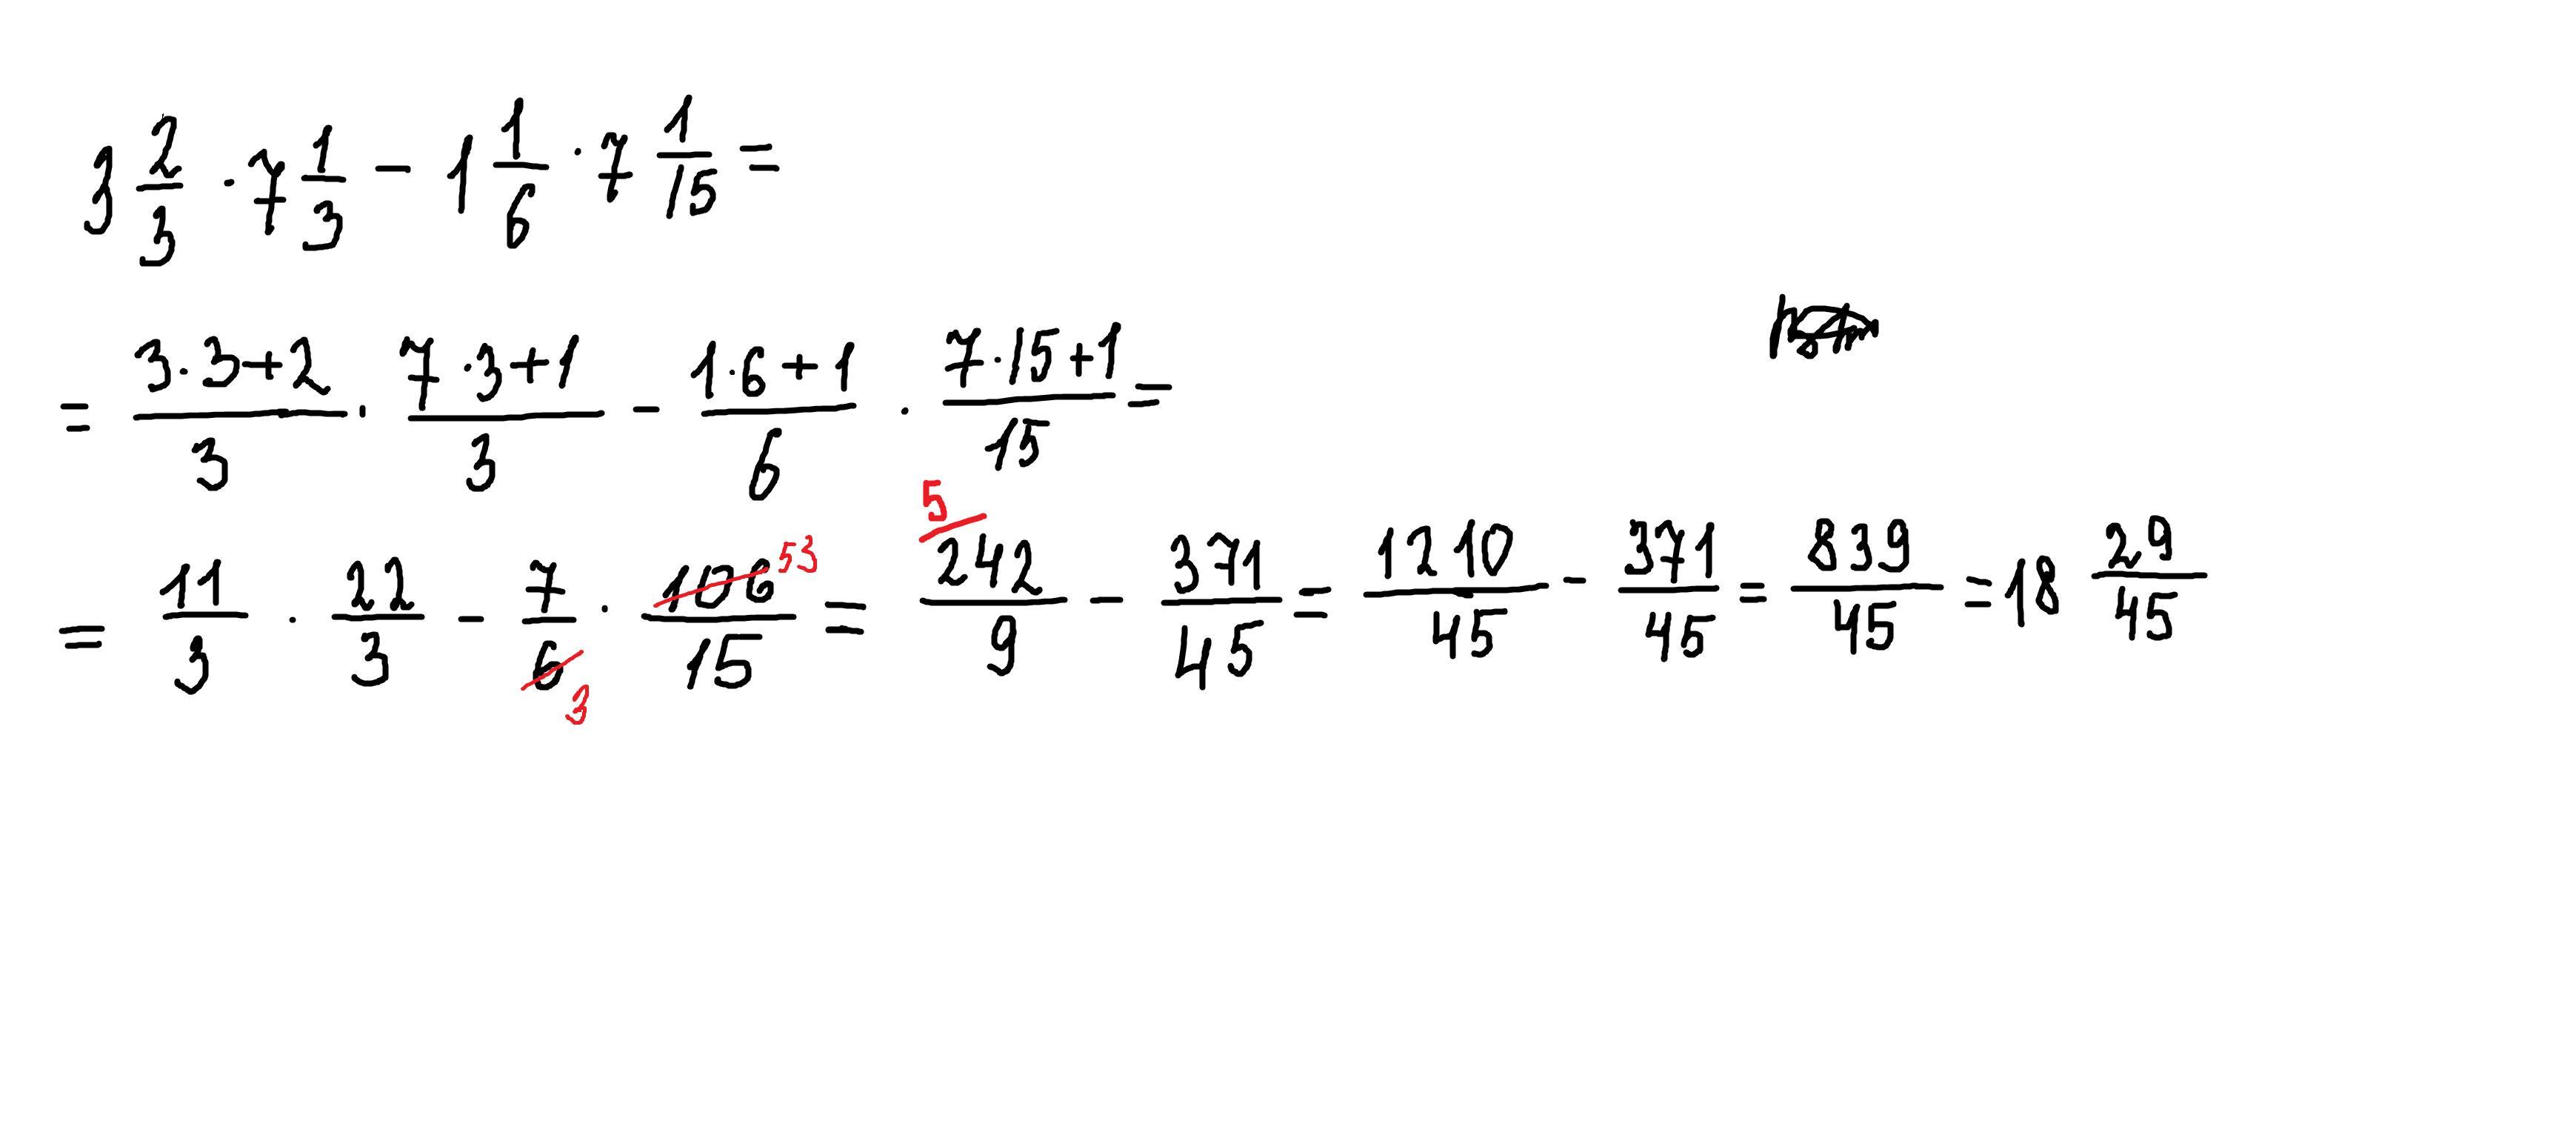 3 2/3 · 7 1/3 - 1 1/6 · 7 1/15 =
= (3·3+2)/3 · (7·3+1)/3 - (1·6+1)/6 · (7·15+1)/15 =
= 11/3 · 22/3 - 7/6 3 · 106 53/15 = 5 242/9 - 371/45 = 1210/45 - 371/45 = 839/45 = 18 29/45